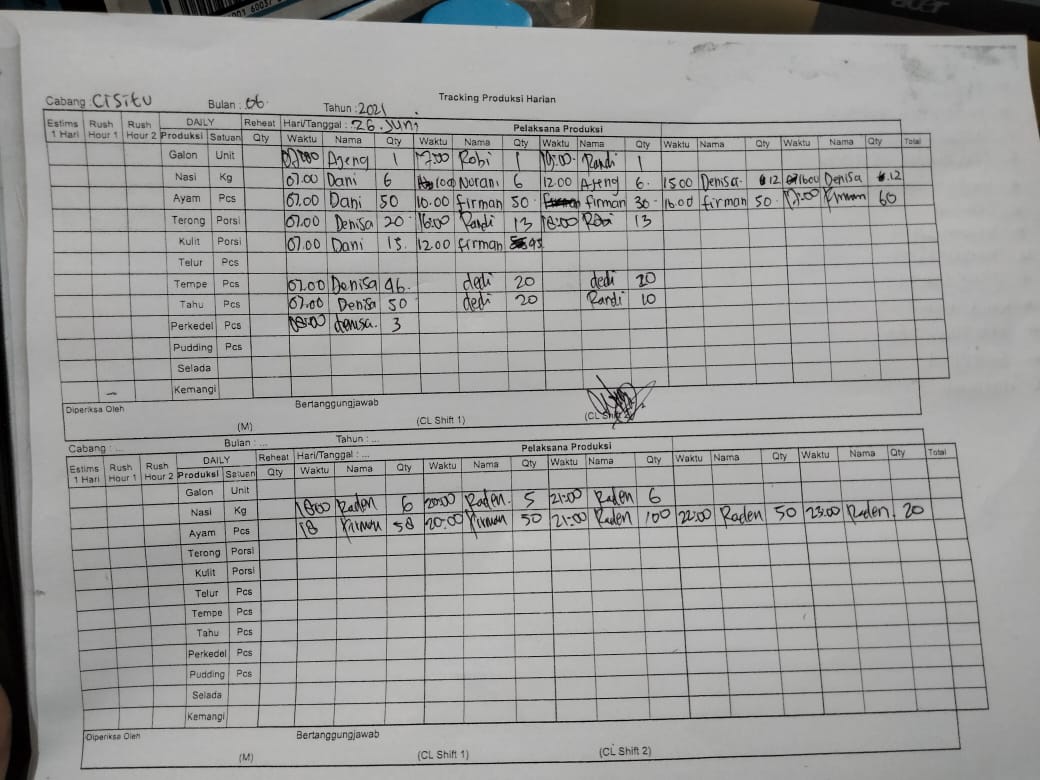 acer
Tracking Produksi Harian
Cabang : CISITU Bulan : 06 Tahun : 2021
Estims 1 Hari Rush Hour 1 Rush Hour 2 DAILY Reheat Hari/Tanggal : 26. Juni Pelaksana Produksi
Produksi Satuan Qty Waktu Nama Qty Waktu Nama Qty Waktu Nama Qty Waktu Nama Qty Waktu Nama Qty Total
Galon Unit Ajeng 1 17:00 Robi 1 Randi 1
Nasi Kg 07.00 Dani 6 Nurani 6 12.00 Ajeng 6. 1500 Denisa. 12 1600 Denisa .12
Ayam Pcs 07.00 Dani 50 10.00 firman 50 firman 30 16.00 firman 50. Firman 60
Terong Porsi 07.00 Denisa 20 16:00 Randi 13 18:00 Robi 13
Kulit Porsi 07.00 Dani 15. 12.00 firman
Telur Pcs
Tempe Pcs 07.00 Denisa 46. dedi 20 dedi 20
Tahu Pcs 07.00 Denisa 50 dedi 20 Randi 10
Perkedel Pcs 08:00 denisa. 3
Pudding Pcs
Selada
Kemangi
Diperiksa Oleh Bertanggungjawab
(M) (CL Shift 1) (CL Shift 2)
Cabang : ... Bulan : ... Tahun : ...
Estims 1 Hari Rush Hour 1 Rush Hour 2 DAILY Reheat Hari/Tanggal : ... Pelaksana Produksi
Produksi Satuan Qty Waktu Nama Qty Waktu Nama Qty Waktu Nama Qty Waktu Nama Qty Waktu Nama Qty Total
Galon Unit
Nasi Kg 18:00 Raden 6 20:00 Raden. 5 21:00 Raden 6
Ayam Pcs 18 Firman 58 20:00 Firman 50 21:00 Raden 100 22:00 Raden 50 23:00 Raden. 20
Terong Porsi
Kulit Porsi
Telur Pcs
Tempe Pcs
Tahu Pcs
Perkedel Pcs
Pudding Pcs
Selada
Kemangi
Diperiksa Oleh Bertanggungjawab
(M) (CL Shift 1) (CL Shift 2)